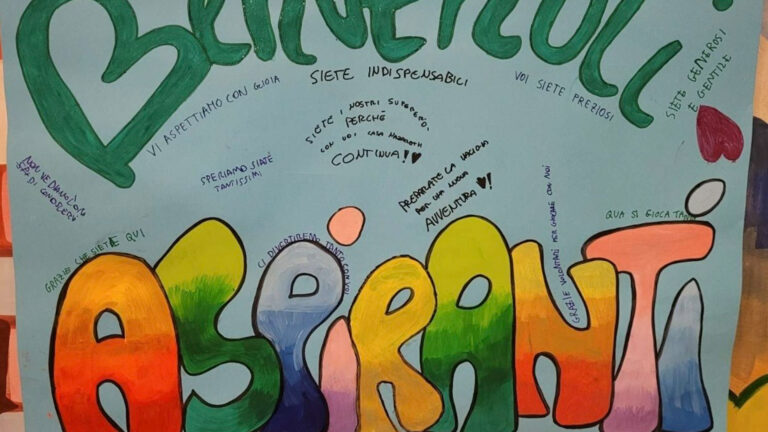 BENVENUTI
VI ASPETTIAMO CON GIOIA
SIETE INDISPENSABILI
VOI SIETE PREZIOSI
SIETE GENEROSI
E GENTILE
SIETE I NOSTRI
PERCHÉ
CON VOI CASA
CONTINUA! ♥
NON VEDIAMO
DI
SPERIAMO SIATE
TANTISSIMI
PREPARATE LA
PER UNA NUOVA
AVVENTURA ♥!
GRAZIE CHE SIETE QUI
CI DIVERTIREMO TANTO CON VOI
GRAZIE VOLONTARI PER GIOCARE CON NOI
QUA SI GIOCA TANTO
ASPIRANTI